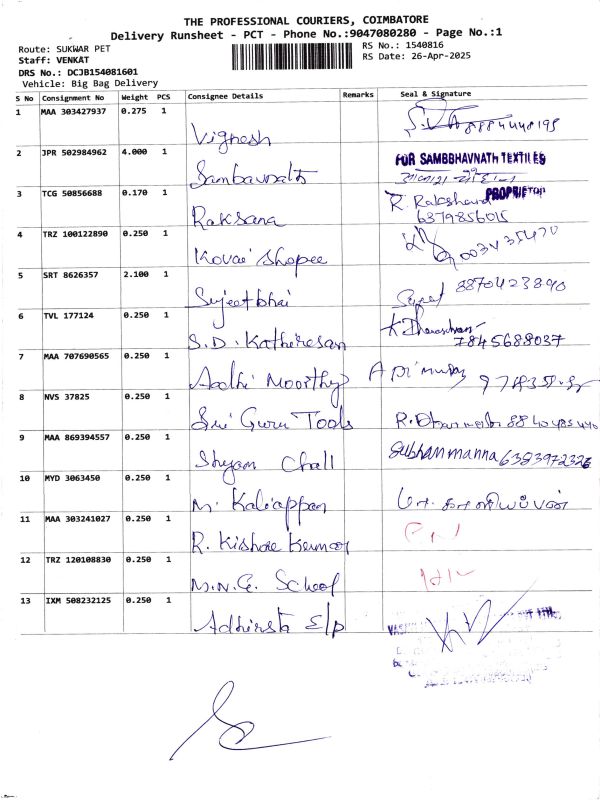 THE PROFESSIONAL COURIERS, COIMBATORE
Delivery Runsheet - PCT - Phone No.:9047080280 - Page No.:1
Route: SUKWAR PET
RS No.: 1540816
Staff: VENKAT
RS Date: 26-Apr-2025
DRS No.: DCJB154081601
Vehicle: Big Bag Delivery
S No Consignment No Weight PCS Consignee Details Remarks Seal & Signature
1 MAA 303427937 0.275 1 Vignesh
2 JPR 502984962 4.000 1 Sambavnath FOR SAMBBHAVNATH TEXTILES
PROPRIETOR
3 TCG 50856688 0.170 1 Raksana R. Rakshana
6379856015
4 TRZ 100122890 0.250 1 Kovai Shopee
5 SRT 8626357 2.100 1 Sujeetbhai 8870423890
6 TVL 177124 0.250 1 S.D. Kathiresan
7845688037
7 MAA 707690565 0.250 1 Aadhi Moorthy
8 NVS 37825 0.250 1 Sri Guru Tools
9 MAA 869394557 0.250 1 Shyam Chall Subhan manna 6383972326
10 MYD 3063450 0.250 1 M. Kaliappan மா. காளியப்பன்
11 MAA 303241027 0.250 1 R. Kishore Kumar
12 TRZ 120108830 0.250 1 M.N.G. School
13 IXM 508232125 0.250 1